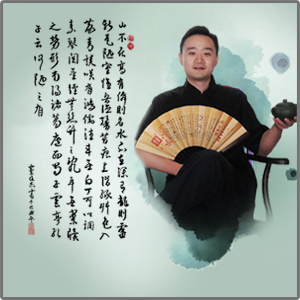 山不在高有仙則名水不在深有龍則靈
斯是陋室惟吾德馨苔痕上階綠艸色入
簾青談笑有鴻儒往來無白丁可以調
素琴閱金經無絲竹之亂耳無案牘
之勞形南陽諸葛廬西蜀子雲亭孔
子云何陋之有